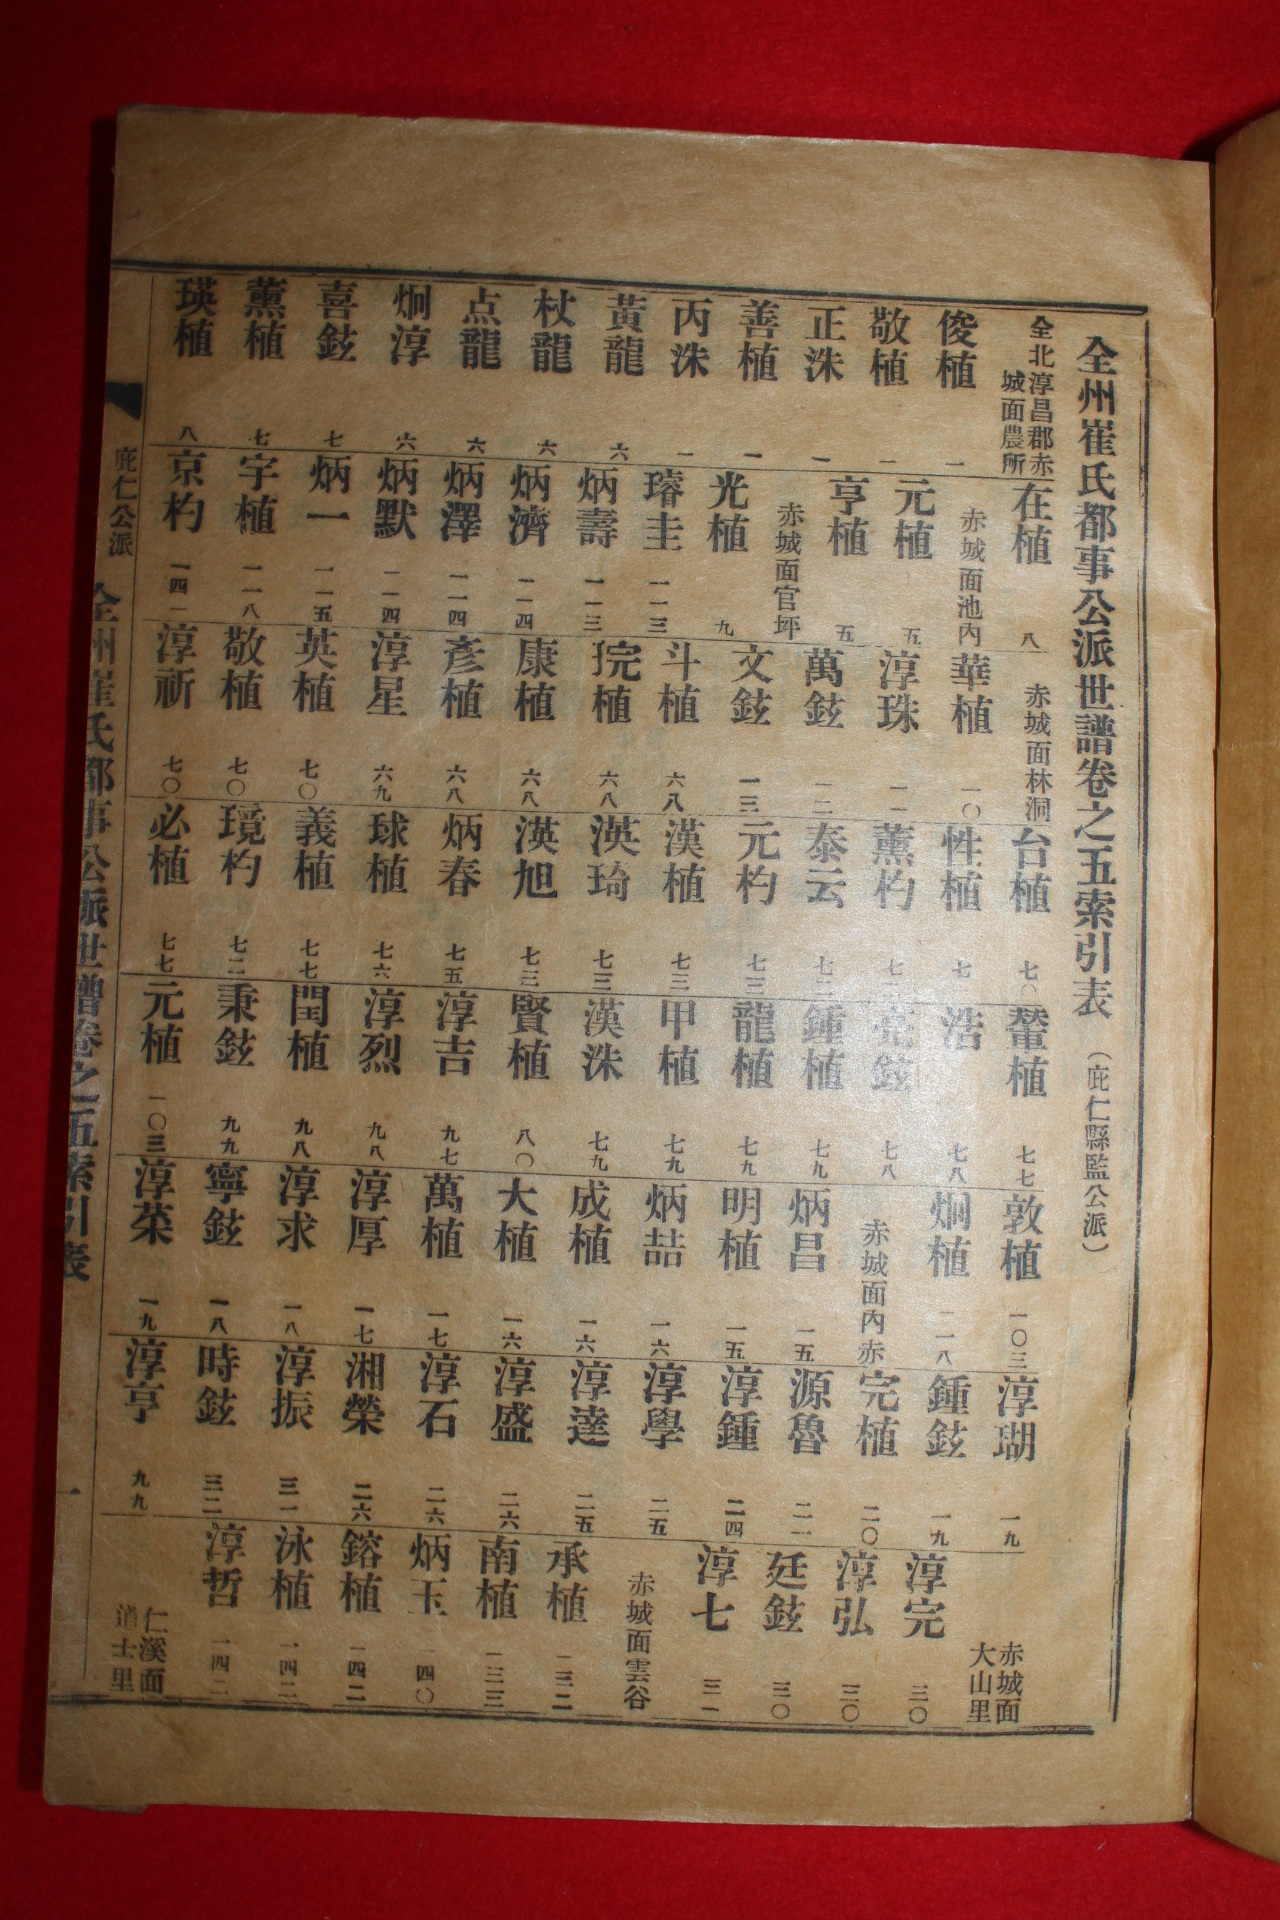 全州崔氏都事公派世譜卷之五索引表 （庇仁縣監公派）
全北淳昌郡赤城面農所
俊植 一
敬植 一
正洙 一
善植 一
丙洙 一
黃龍 六
杖龍 六
点龍 六
炯淳 六
喜鉉 七
薰植 七
瑛植 八
在植 八
赤城面池內
元植 五
亨植 五
赤城面官坪
光植 九
璿圭 一一三
炳壽 一一三
炳濟 一一四
炳澤 一一四
炳默 一一四
炳一 一一五
宇植 一一八
京杓 一四一
赤城面林洞
華植 一〇
淳珠 一一
萬鉉 一二
文鉉 一三
斗植 六八
琓植 六八
康植 六八
彥植 六八
淳星 六九
英植 七〇
敬植 七〇
淳祈 七〇
台植 七〇
性植
薰杓
泰云 七二
元杓 七三
漢植 七三
渶琦 七三
渶旭 七三
炳春 七五
球植 七六
義植 七七
璄杓 七二
必植 七七
輦植 七七
浩 七八
亮鉉 七八
鍾植 七九
龍植 七九
甲植 七九
漢洙 七九
賢植 八〇
淳吉 九七
淳烈 九八
閏植 九八
秉鉉 九九
元植 一〇三
敦植 一〇三
炯植 一一八
赤城面內赤
炳昌 一五
明植 一五
炳喆 一六
成植 一六
大植 一六
萬植 一七
淳厚 一七
淳求 一八
寧鉉 一八
淳菜 一九
淳瑚 一九
鍾鉉 一九
完植 二〇
源魯 二一
淳鍾 二四
淳學 二五
淳達 二五
淳盛 二六
淳石 二六
湘榮 二六
淳振 三一
時鉉 三二
淳亨 九九
赤城面大山里
淳完 三〇
淳弘 三〇
廷鉉 三〇
淳七 三一
赤城面雲谷
承植 一三二
南植 一三三
炳玉 一四〇
鎔植 一四二
泳植 一四二
淳哲 一四二
仁溪面道士里
庇仁公派 全州崔氏都事公派世譜卷之五索引表 一